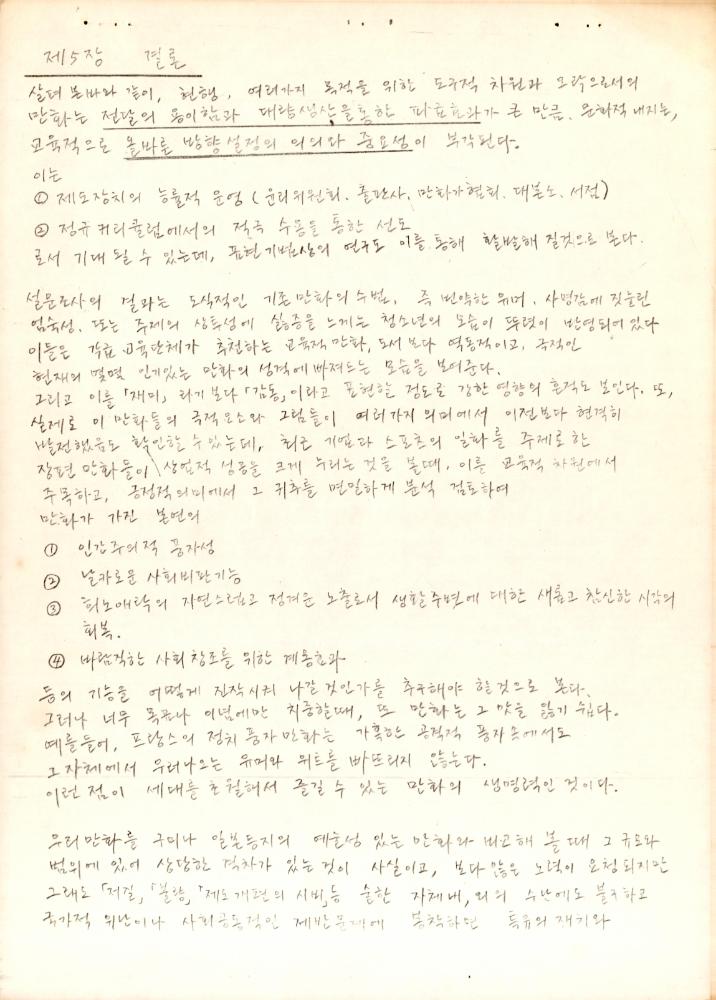 제5장 결론
살펴 본바와 같이, 현행, 여러가지 목적을 위한 도구적 차원과 오락으로서의
만화는 전달의 용이함과 대량생산을 통한 파급효과가 큰 만큼, 문화적 내지는,
교육적으로 올바른 방향설정의 의의와 중요성이 부각된다.
이는
① 제도장치의 능률적 운영 (윤리위원회, 출판사, 만화가협회, 대본소, 서점)
② 정규 커리큘럼에서의 적극 수용을 통한 선도
로서 기대 될 수 있는데, 표현기법상의 연구도 이를 통해 활발해 질것으로 본다.
설문조사의 결과는 도식적인 기존만화의 수법, 즉 빈약한 유머, 사명감에 짓눌린
엄숙성, 또는 주제의 상투성에 싫증을 느끼는 청소년의 모습이 뚜렷이 반영되어 있다
이들은 각급 교육단체가 추천하는 교육적만화, 도서 보다 역동적이고, 극적인
현재의 몇몇 인기있는 만화의 성격에 빠져드는 모습을 보여준다.
그리고 이를 「재미」라기 보다 「감동」이라고 표현할 정도로 강한 영향의 흔적도 보인다. 또,
실제로 이 만화들의 극적요소와 그림들이 여러가지 의미에서 이전보다 현격히
발전했음도 확인할 수 있는데, 최근 기업과 스포츠의 일화를 주제로 한
장편 만화들이 상업적 성공을 크게 누리는 것을 볼때, 이를 교육적 차원에서
주목하고, 긍정적 의미에서 그 귀추를 면밀하게 분석 검토하여
만화가 가진 본연의
① 인간주의적 풍자성
② 날카로운 사회비판기능
③ 희노애락의 자연스럽고 정겨운 노출로서 생활주변에 대한 새롭고 참신한 시각의
회복.
④ 바람직한 사회창조를 위한 계몽효과
등의 기능을 어떻게 진작시켜 나갈 것인가를 추구해야 할 것으로 본다.
그러나 너무 목적나 이념에만 치중할때, 또 만화는 그 맛을 잃기 쉽다.
예를들어, 프랑스의 정치 풍자만화는 가혹한 공격적 풍자 속에서도
그 자체에서 우러나오는 유머와 위트를 빠뜨리지 않는다.
이런 점이 세대를 초월해서 즐길 수 있는 만화의 생명력인 것이다.
우리만화를 구미나 일본등지의 예술성 있는 만화와 비교해 볼때 그 규모와
범위에 있어 상당한 격차가 있는 것이 사실이고, 보다 많은 노력이 요청되지만
그래도 「저질」, 「불량」, 「제도개편의 시비」등 숱한 자체내, 외의 수난에도 불구하고
국가적 위난이나 사회공동적인 제반문제에 봉착하면 특유의 재치와